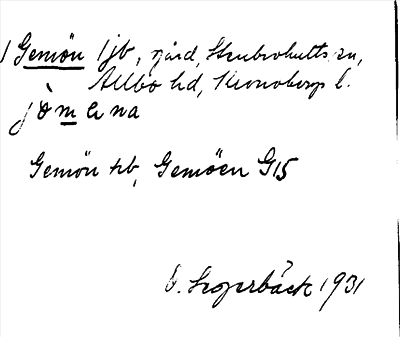 1 Gemön 1 jb, gård, Stenbrohults sn,
Allbo hd, Kronobergs l.
jö̀mena
Gemön tb, Gemöen G15
B. Segerbäck 1931